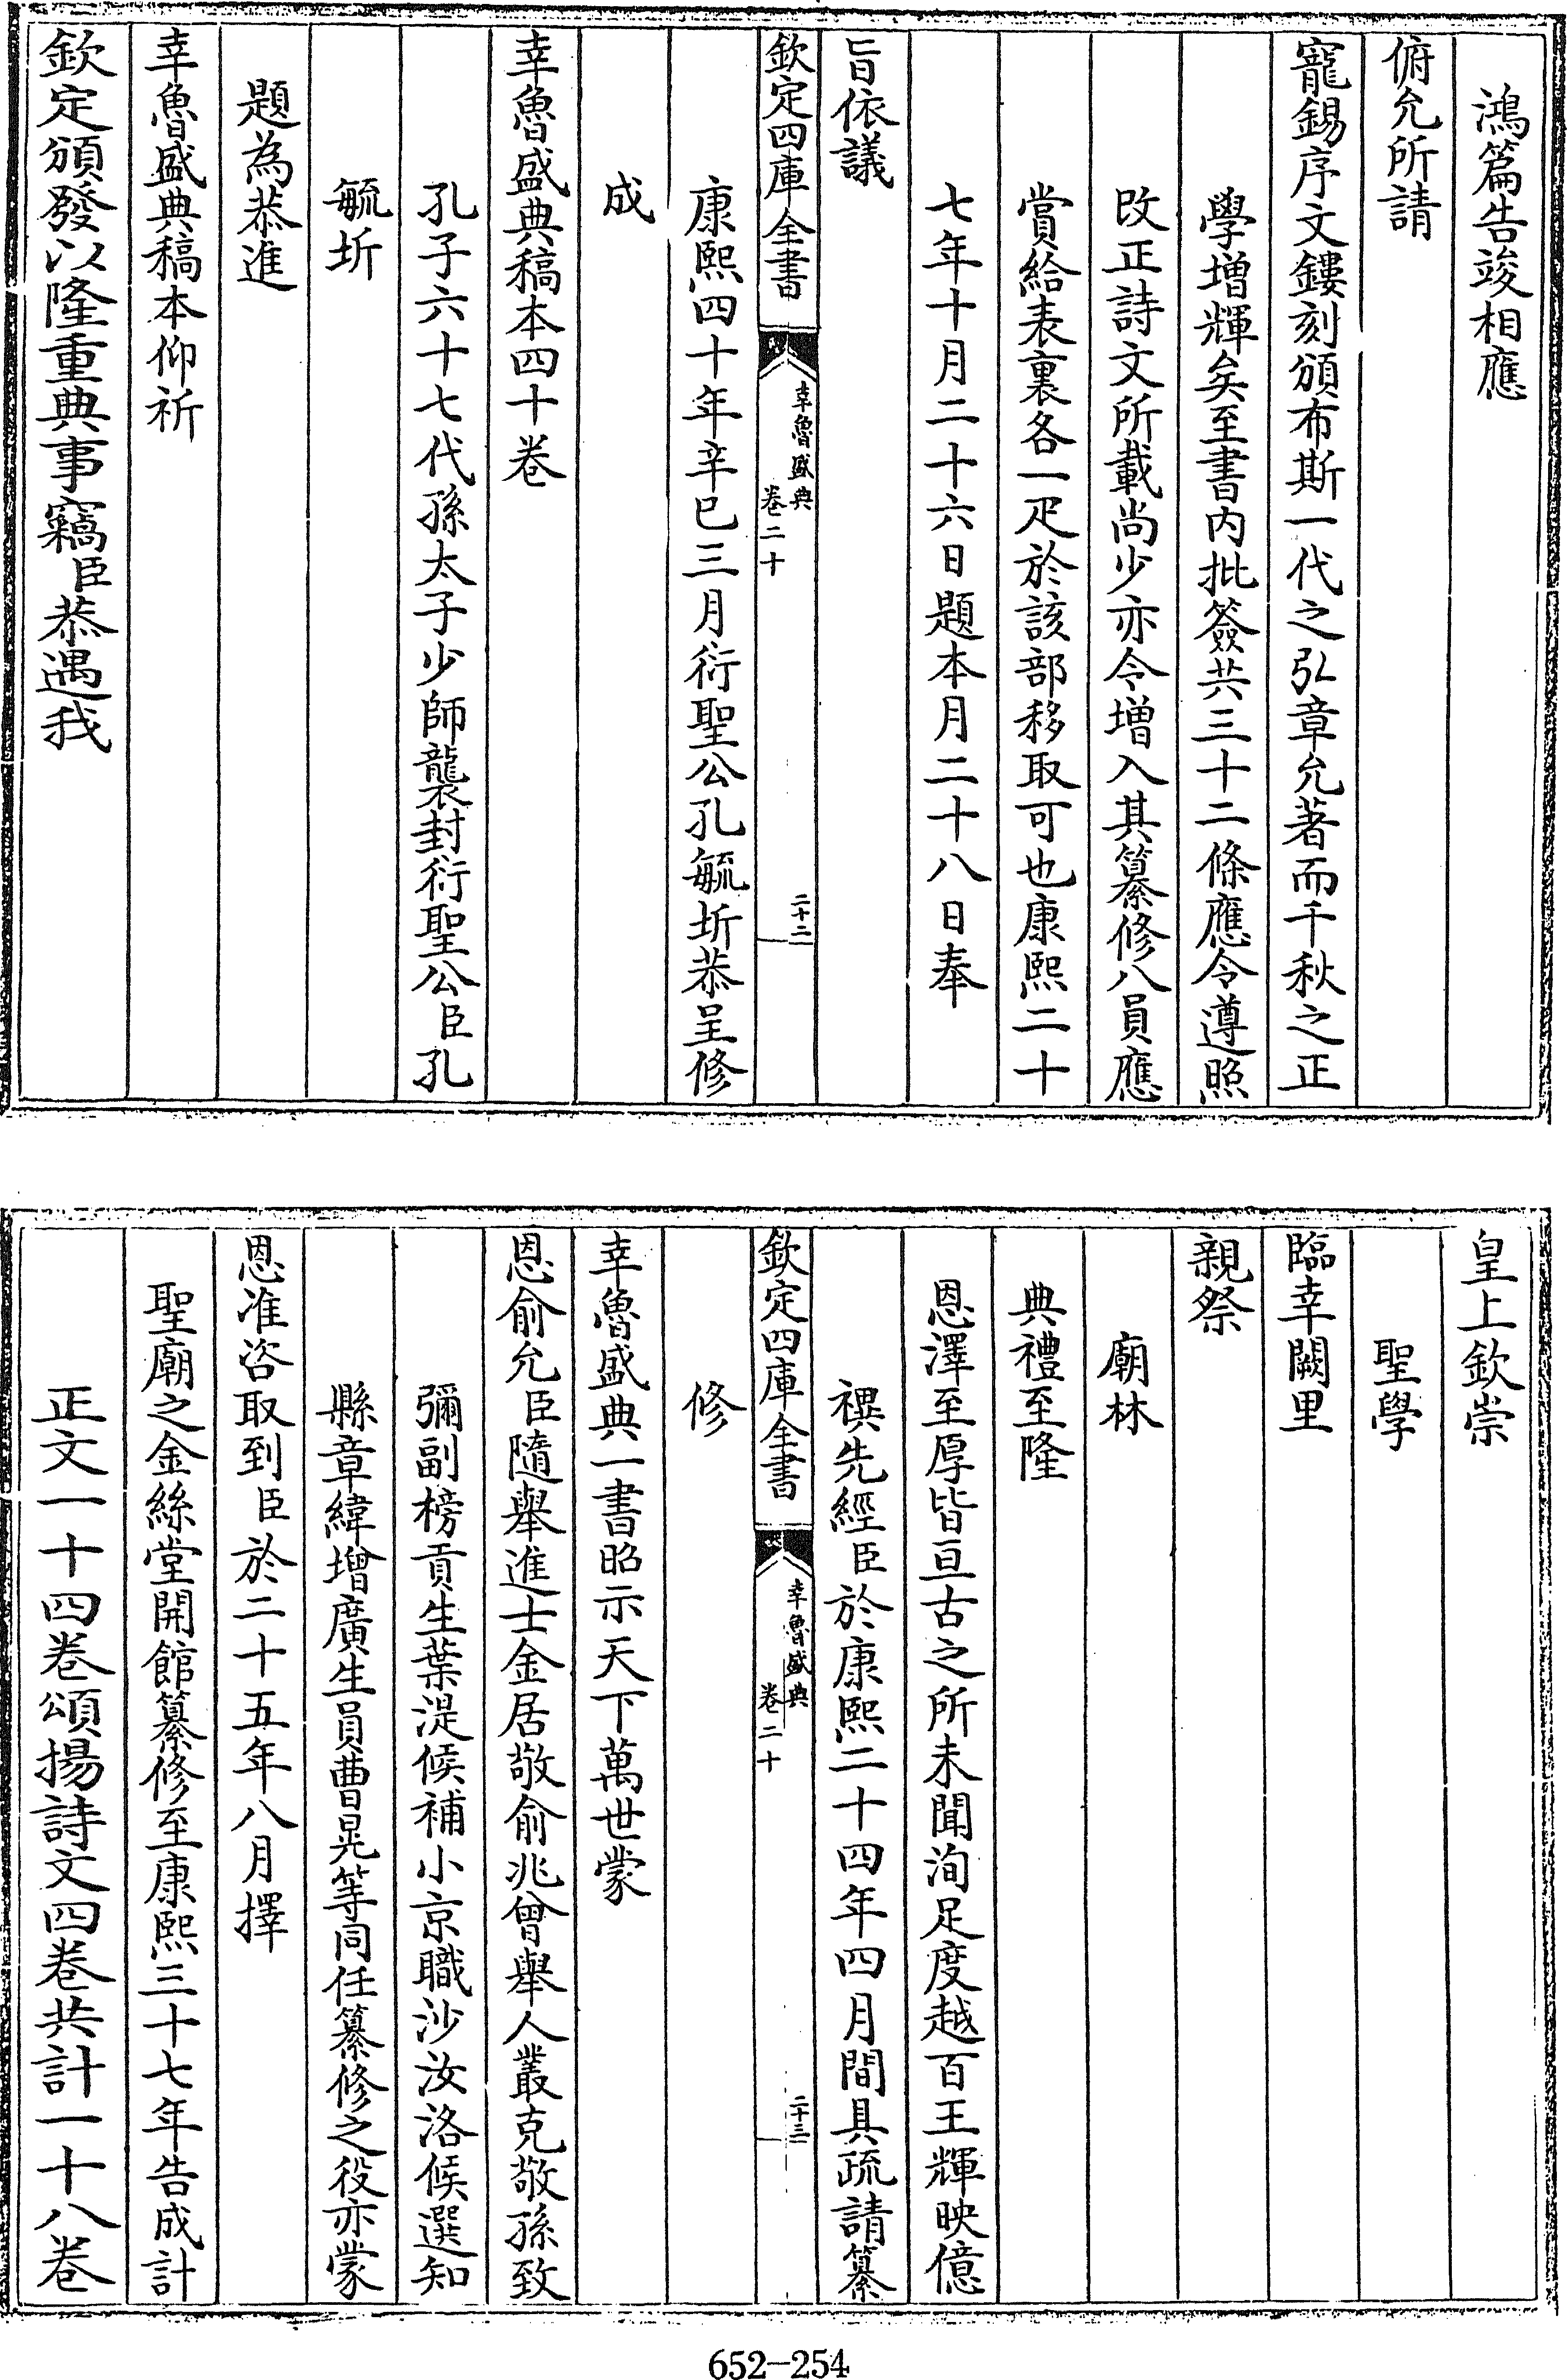 鴻篇告竣相應
俯允所請
寵錫序文鏤刻頒布斯一代之弘章允著而千秋之正
學增輝矣至書内批簽共三十二條應令遵照
改正詩文所載尚少亦令增入其纂修八員應
賞給表裏各一疋於該部移取可也康熙二十
七年十月二十六日題本月二十八日奉
旨依議
欽定四庫全書
幸魯盛典
卷二十
二十二
康熙四十年辛巳三月衍聖公孔毓圻恭呈修
成
幸魯盛典稿本四十卷
孔子六十七代孫太子少師襲封衍聖公臣孔
毓圻
題為恭進
幸魯盛典稿本仰祈
欽定頒發以隆重典事竊臣恭遇我
皇上欽崇
聖學
臨幸闕里
親祭
廟林
典禮至隆
恩澤至厚皆亘古之所未聞洵足度越百王輝映億
禩先經臣於康熙二十四年四月間具疏請纂
欽定四庫全書
幸魯盛典
卷二十
二十三
修
幸魯盛典一書昭示天下萬世蒙
恩俞允臣隨舉進士金居敬俞兆曾舉人叢克敬孫致
彌副榜貢生葉湜候補小京職沙汝洛候選知
縣章緯增廣生員曹晃等同任纂修之役亦蒙
恩准咨取到臣於二十五年八月擇
聖廟之金絲堂開館纂修至康熙三十七年告成計
正文一十四卷頌揚詩文四卷共計一十八卷
652-254